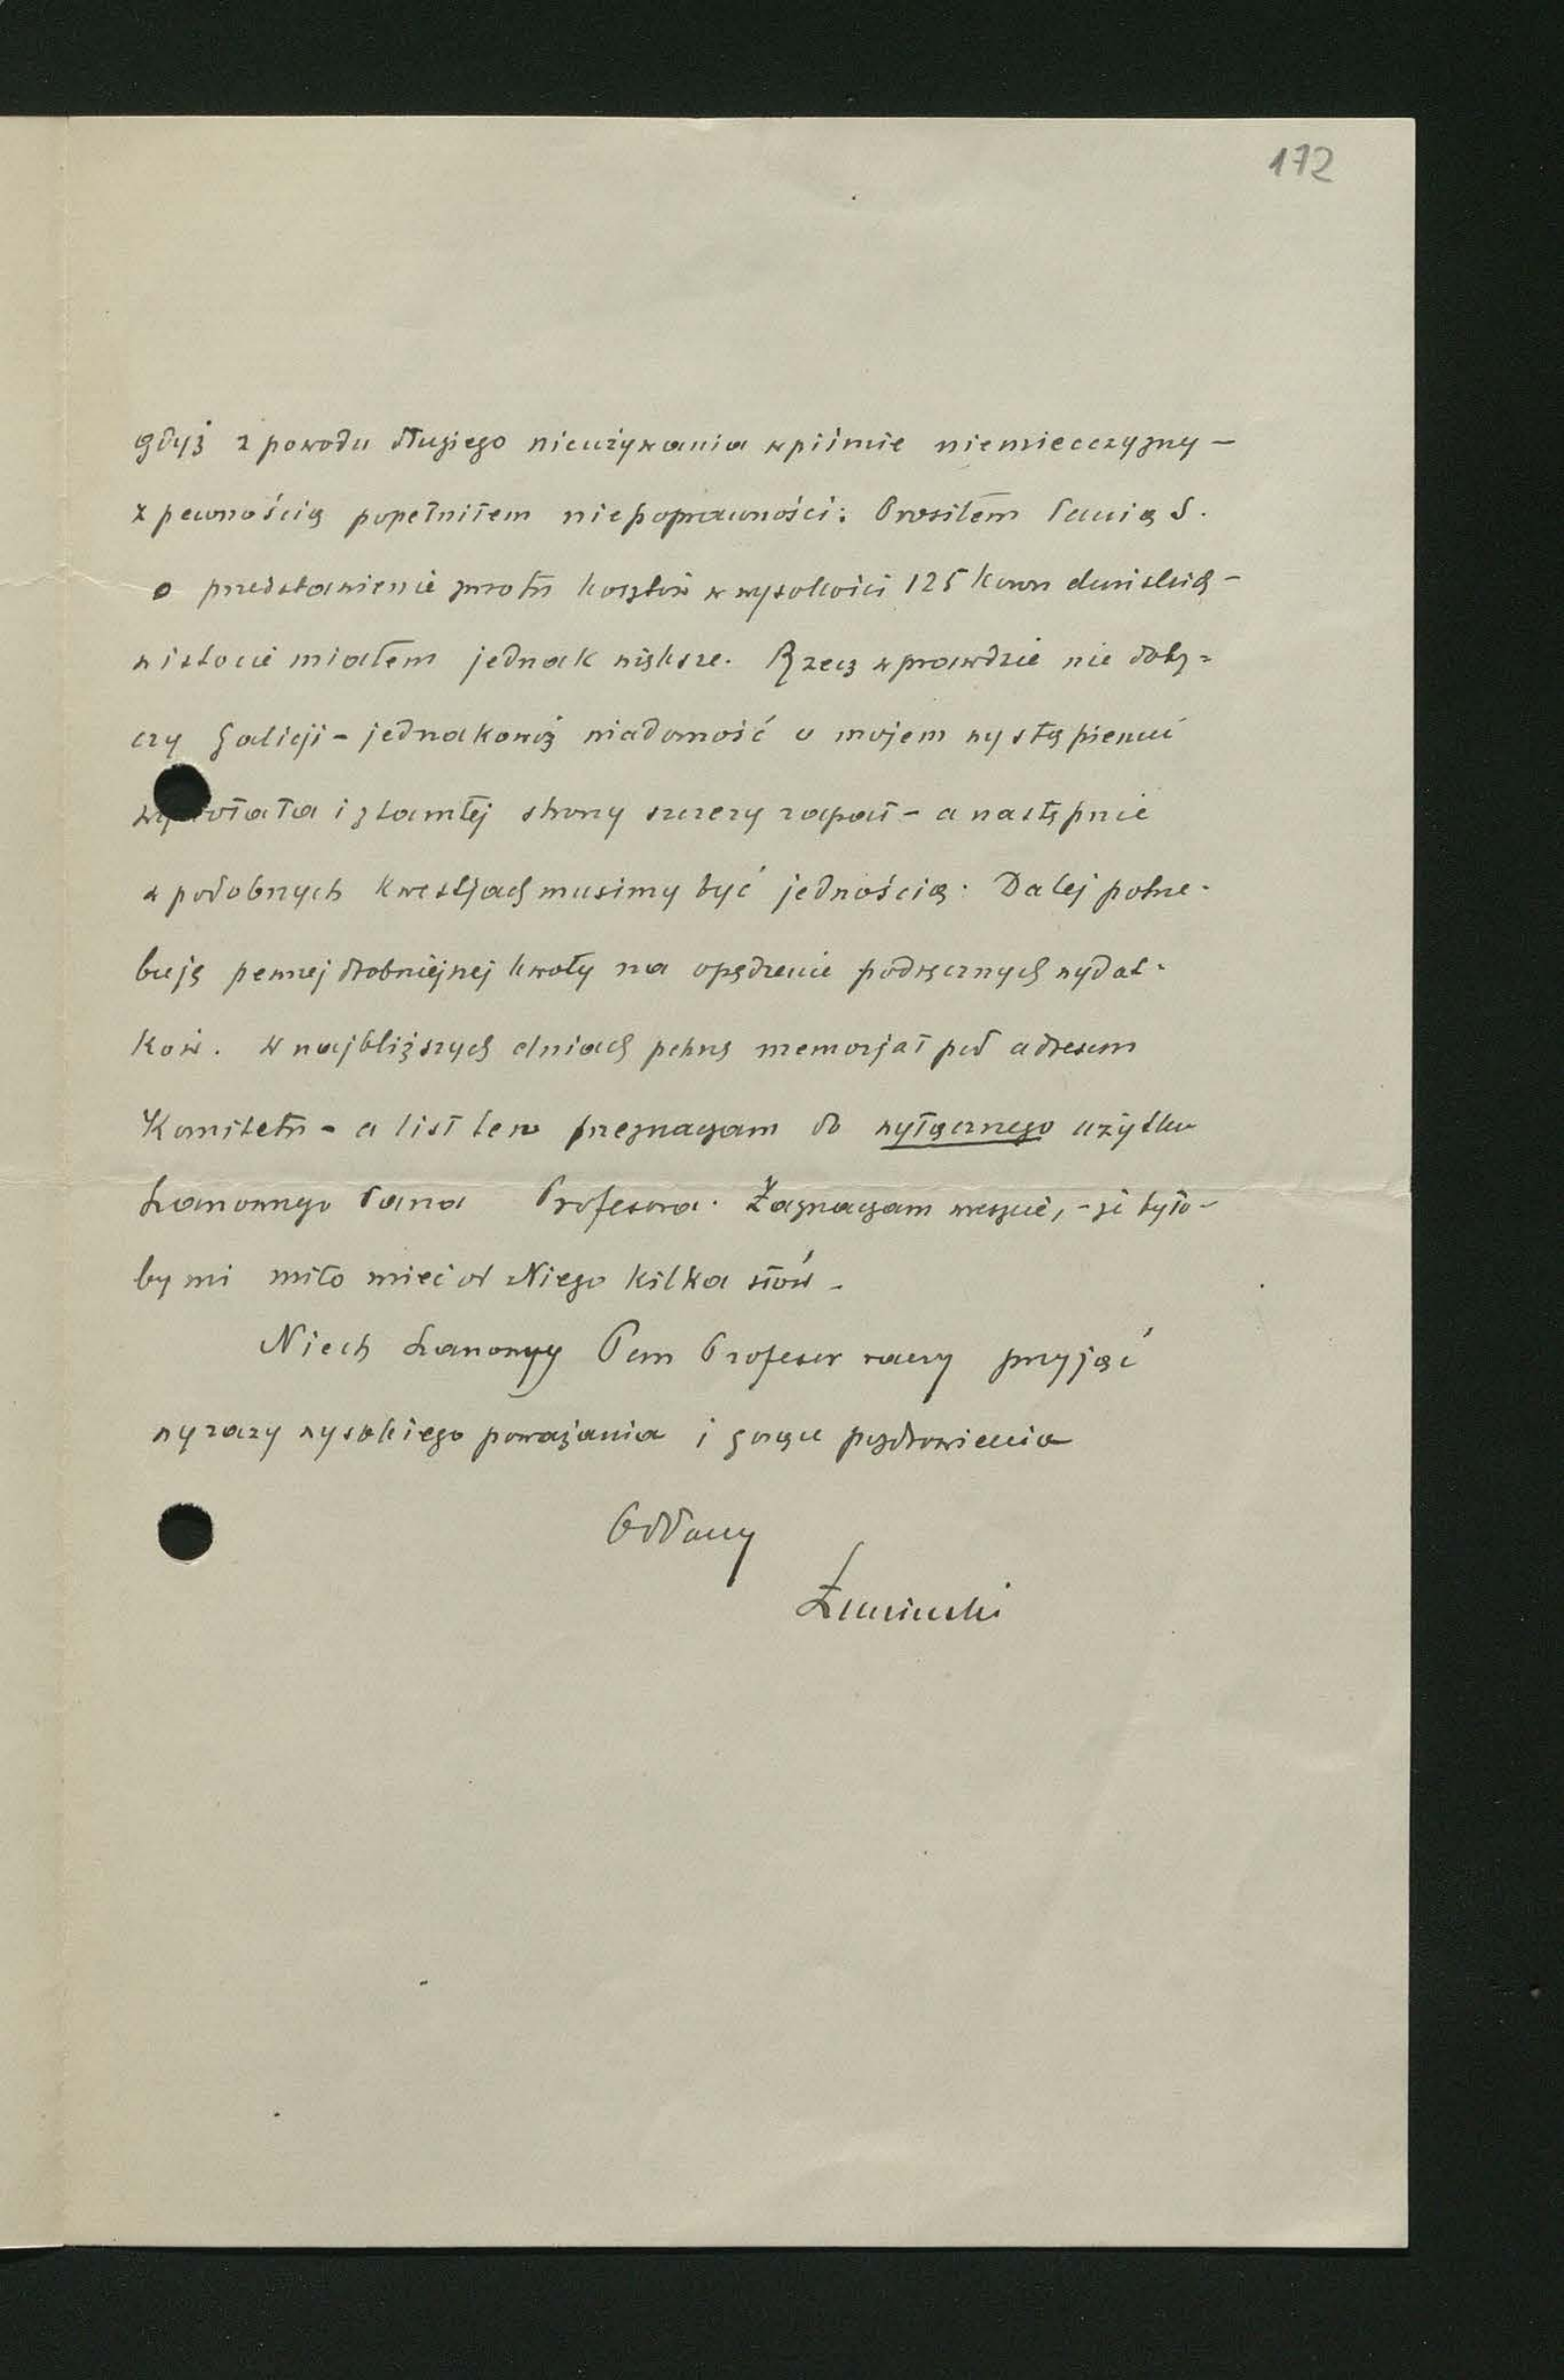 172
gdyż z powodu długiego nieużywania w piśmie niemieczyzny –
z pewnością popełniłem niepoprawności. Prosiłem Panią S.
o przedstawienie zwrotu kosztów w wysokości 125 koron duńskich –
w istocie miałem jednak większe. Rzecz wprawdzie nie doty=
czy Galicji – jednakowoż wiadomość o mojem wystąpieniu
wywołała i z tamtej strony szczery zapał – a następnie
w podobnych kwestjach musimy być jednością. Dalej potrze-
buję pewnej drobniejszej kwoty na opędzenie podręcznych wydat-
ków. W najbliższych dniach pchnę memorjał pod adresem
Komitetu – a list ten przeznaczam do wyłącznego użytku
Szanownego Pana Profesora. Zaznaczam wreszcie, – że było-
by mi miło mieć od Niego kilka słów.
Niech Szanowny Pan Profesor raczy przyjąć
wyrazy wysokiego poważania i gorące pozdrowienia
Oddany